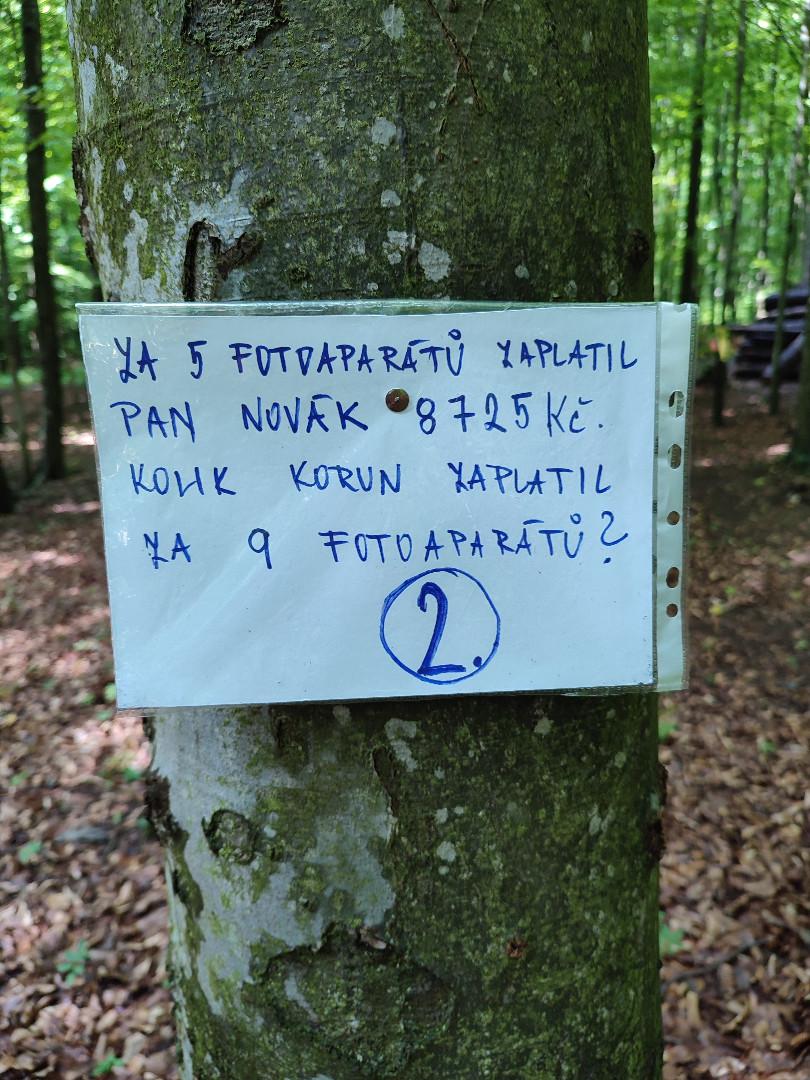 ZA 5 FOTOAPARÁTŮ ZAPLATIL
PAN NOVÁK 8725 Kč.
KOLIK KORUN ZAPLATIL
ZA 9 FOTOAPARÁTŮ?
2.